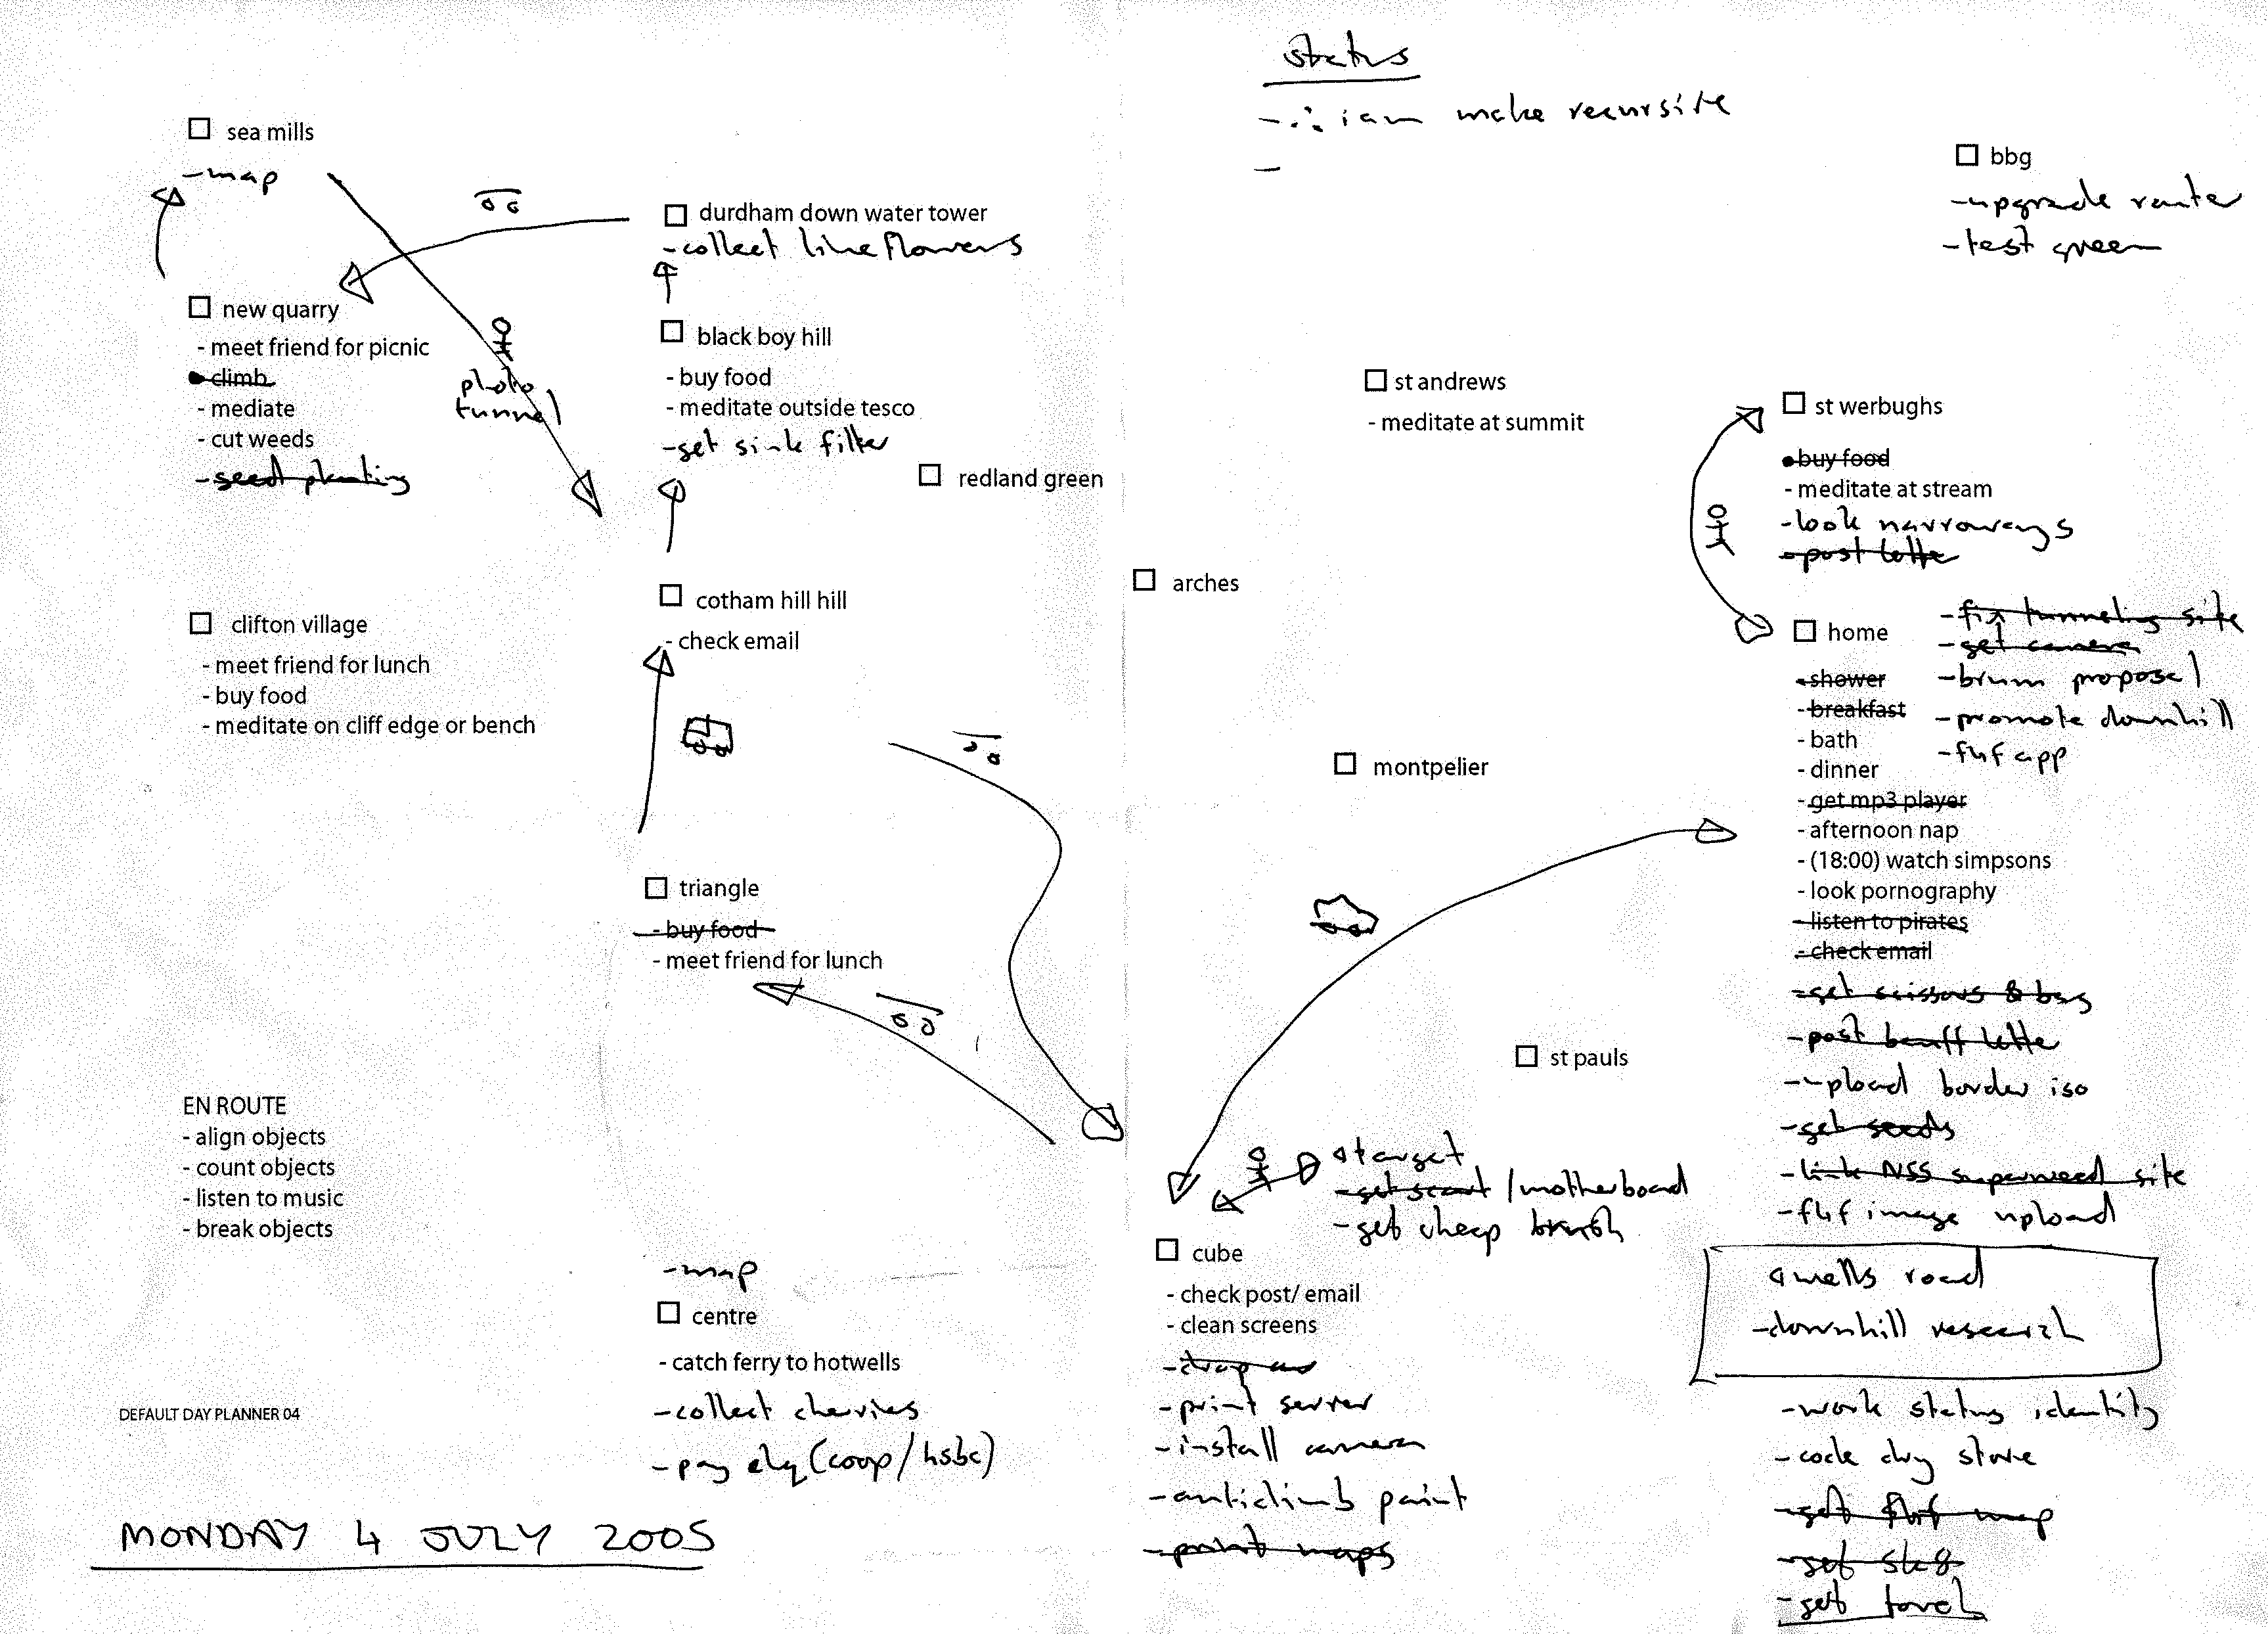 status
- ∴ i am make recursite
-
sea mills
- map
new quarry
- meet friend for picnic
- climb
- mediate
- cut weeds
- seed planting
photo
tunnel
durdham down water tower
- collect lime flowers
black boy hill
- buy food
- meditate outside tesco
- get sink filter
redland green
cotham hill hill
- check email
clifton village
- meet friend for lunch
- buy food
- meditate on cliff edge or bench
triangle
- buy food
- meet friend for lunch
EN ROUTE
- align objects
- count objects
- listen to music
- break objects
- map
centre
- catch ferry to hotwells
- collect cherries
- pay (coop/hsbc)
DEFAULT DAY PLANNER 04
MONDAY 4 JULY 2005
bbg
- upgrade router
- test green
st andrews
- meditate at summit
arches
montpelier
st pauls
target
- get /motherboard
- get cheap
cube
- check post/ email
- clean screens
- drop
- print server
- install camera
- anticlimb paint
- print maps
st werbughs
- buy food
- meditate at stream
- look narroways
- post letter
home
- shower
- breakfast
- bath
- dinner
- get mp3 player
- afternoon nap
- (18:00) watch simpsons
- look pornography
- listen to pirates
- check email
- get scissors & bag
- post banff letter
- upload border iso
- get seeds
- link NSS superweed site
- fhf image upload
- fix tunneling site
- get camera
- brum proposal
- promote downhill
- fhf app
wells road
- downhill research
- work status identity
- code dry stone
- get fhf map
- get sk8
- get torch